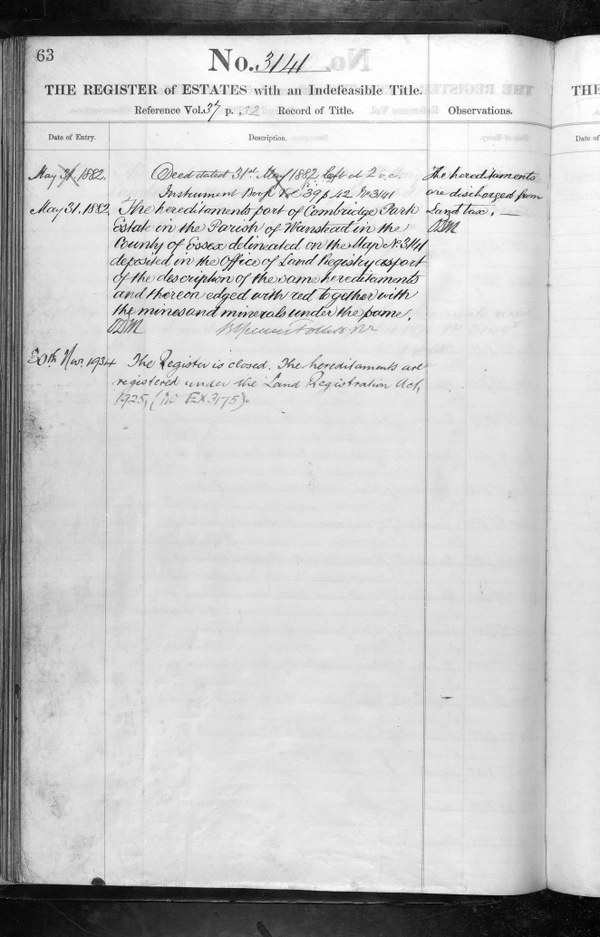 63
No. 3141
THE REGISTER of ESTATES with an Indefeasible Title.
Reference Vol. 37 p. 32 Record of Title. Observations.
Date of Entry. Description.
May 31. 1882. Deed dated 31st May 1882 left at 2 o.c.
Instrument Book No 39 p. 42 No 3141
May 31. 1882. The hereditaments part of Cambridge Park
Estate in the Parish of Wanstead in the
County of Essex delineated on the Map No 3141
deposited in the Office of Land Registry as part
of the description of the same hereditaments
and thereon edged with red together with
the mines and minerals under the same.
The hereditaments
are discharged from
Land tax. —
30th Nov. 1934 The Register is closed. The hereditaments are
registered under the Land Registration Act,
1925, (No EX 3175).
THE
Date of